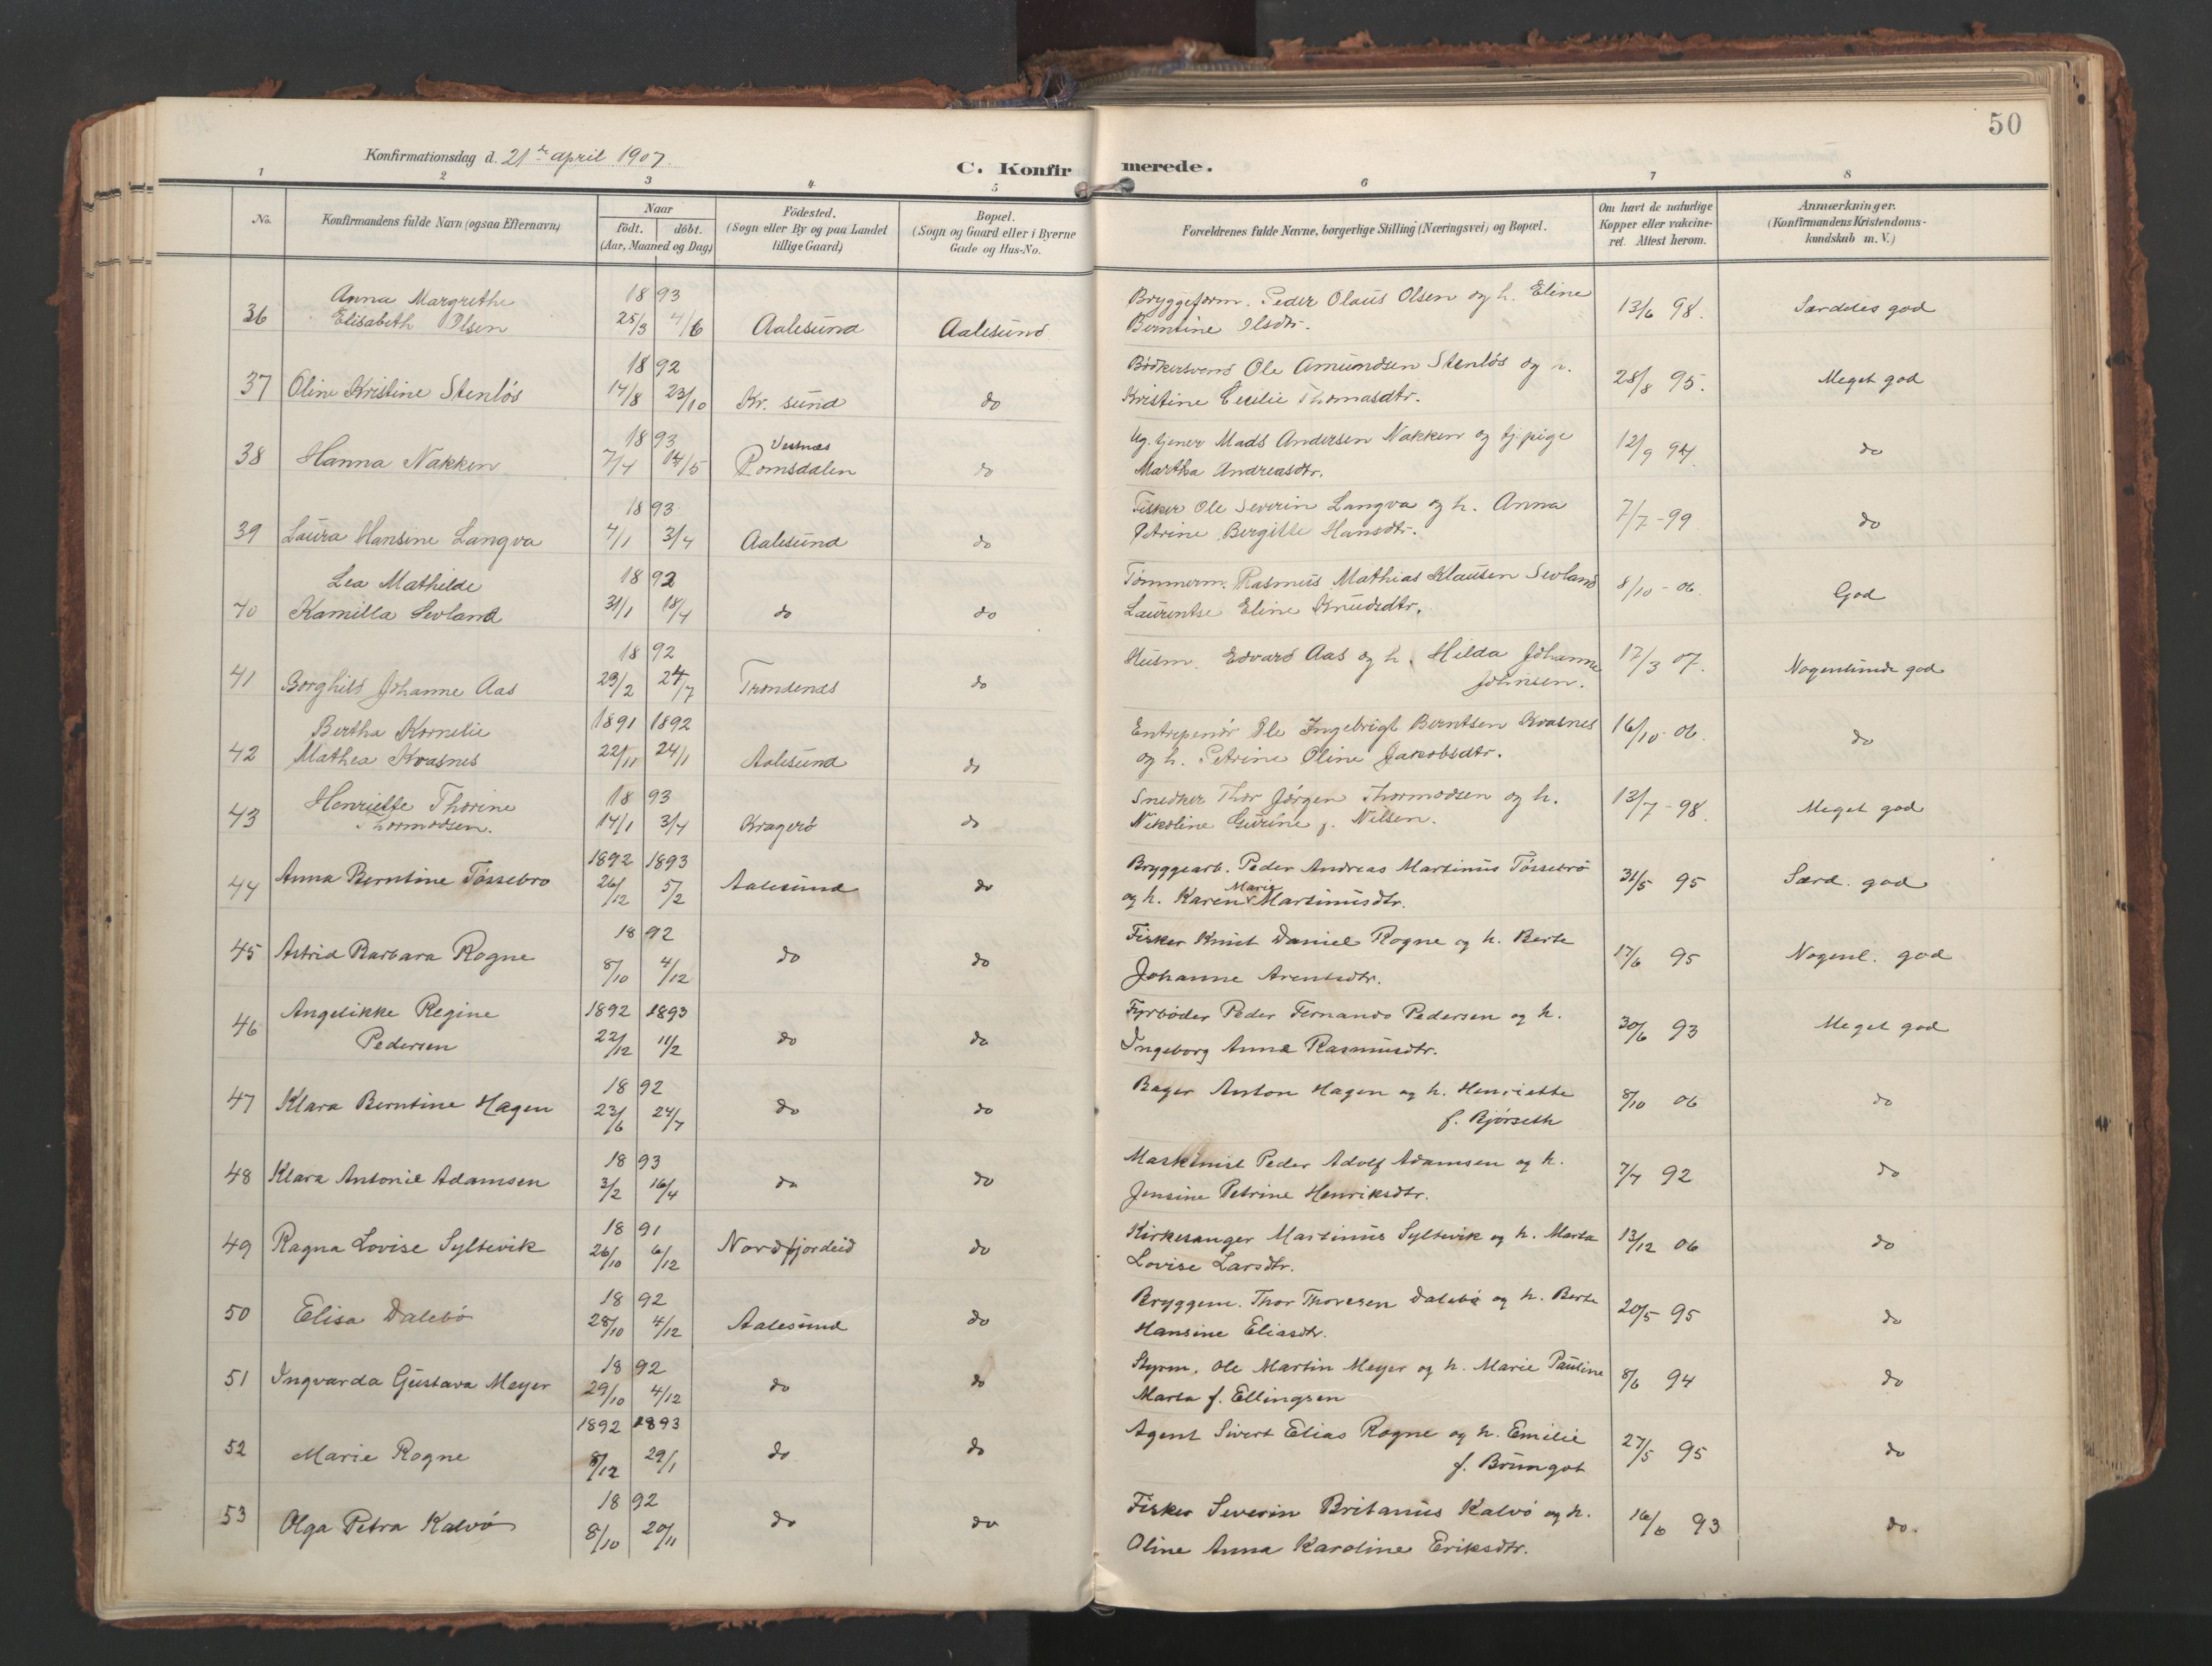 50
Konfirmationsdag d. 21de april 1907.
C. Konfirmerede.
1 2 3 4 5 6 7 8
No. Konfirmandens fulde Navn (ogsaa Efternavn) Naar født. døbt. (Aar, Maaned og Dag) Fødested. (Sogn eller By og paa Landet tillige Gaard) Bopæl. (Sogn og Gaard eller i Byerne Gade og Hus-No. Forældrenes fulde Navne, borgerlige Stilling (Næringsvei) og Bopæl. Om havt de naturlige Kopper eller vakcineret. Attest herom. Anmærkninger. (Konfirmandens Kristendomskundskab m. V.)
Anna Margrethe 18 93 Bryggeform. Peder Olaus Olsen og h. Eline
36 Elisabeth Olsen 25/3 4/6 Aalesund Aalesund Berntine Olsdtr. 13/6 98. Særdeles god
18 92 Bødkersvend Ole Amundsen Stenløs og h.
37 Oline Kristine Stenløs 14/8 23/10 Kr. sund do Kristine Cecilie Thomasdtr. 28/8 95. Meget god
18 93 Vestnes Ug. tjener Mads Andersen Nakken og tj. pige
38 Hanna Nakken 7/4 14/5 Romsdalen do Martha Andreasdtr. 12/9 94. do
18 93 Fisker Ole Severin Langva og h. Anna
39 Laura Hansine Langva 4/1 3/4 Aalesund do Petrine Bergitte Hansdtr. 7/7-99 do
Lea Mathilde 18 92 Tømmerm. Rasmus Mathias Klausen Sevland
40 Kamilla Sevland 31/1 18/4 do do Laurentse Eline Knudsdtr. 8/10-06. God
18 92 Husm. Edvard Aas og h. Hilda Johanne
41 Borghild Johanne Aas 23/2 24/7 Trondenes do Johnsen. 17/3 07. Nogenlunde god
Bertha Kornelie 1891 1892 Entrepenør Ole Ingebrigt Berntsen Kvasnes
42 Mathea Kvasnes 22/11 24/1 Aalesund do og h. Petrine Oline Jakobsdtr. 16/10-06. do
Henriette Thorine 18 93 Snedker Thor Jørgen Thormodsen og h.
43 Thormodsen. 14/1 3/4 Kragerø do Nikoline Gurine f. Nilsen. 13/7-98. Meget god
1892 1893 Bryggearb. Peder Andreas Martinus Tøssebrø
44 Anna Berntine Tøssebro 26/12 5/2 Aalesund do og h. Karen Marie Martinusdtr. 31/5 95 Særd. god
18 92 Fisker Knut Daniel Rogne og h. Berte
45 Astrid Barbara Rogne 8/10 4/12 do do Johanne Arentsdtr. 17/6 95 Nogenl. god
Angelikke Regine 1892 1893 Fyrbøder Peder Fernando Pedersen og h.
46 Pedersen 22/12 11/2 do do Ingeborg Anna Rasmusdtr. 30/6 93 Meget god
18 92 Bager Anton Hagen og h. Henriette
47 Klara Berntine Hagen 23/6 24/7 do do f. Bjørseth 8/10 06 do
18 93 Maskinist Peder Adolf Adamsen og h.
48 Klara Antonie Adamsen 3/2 16/4 do do Jensine Petrine Henriksdtr. 7/4 92 do
18 91 Kirkesanger Martinus Syltevik og h. Marta
49 Ragna Lovise Syltevik 26/10 6/12 Nordfjordeid do Lovise Larsdtr. 13/12 06 do
18 92 Bryggem. Thor Thoresen Dalebø og h. Berte
50 Elisa Dalebø 28/10 4/12 Aalesund do Hansine Eliasdtr. 20/5 95 do
18 92 Styrm. Ole Martin Meyer og h. Marie Pauline
51 Ingvarda Gustava Meyer 29/10 4/12 do do Marta f. Ellingsen 8/6 94 do
1892 1893 Agent Sivert Elias Rogne og h. Emilie
52 Marie Rogne 8/12 29/1 do do f. Brungot 27/5 95 do
18 92 Fisker Severin Britanus Kalvø og h.
53 Olga Petra Kalvø 8/10 20/11 do do Oline Anna Karoline Eriksdtr. 16/6 93 do.